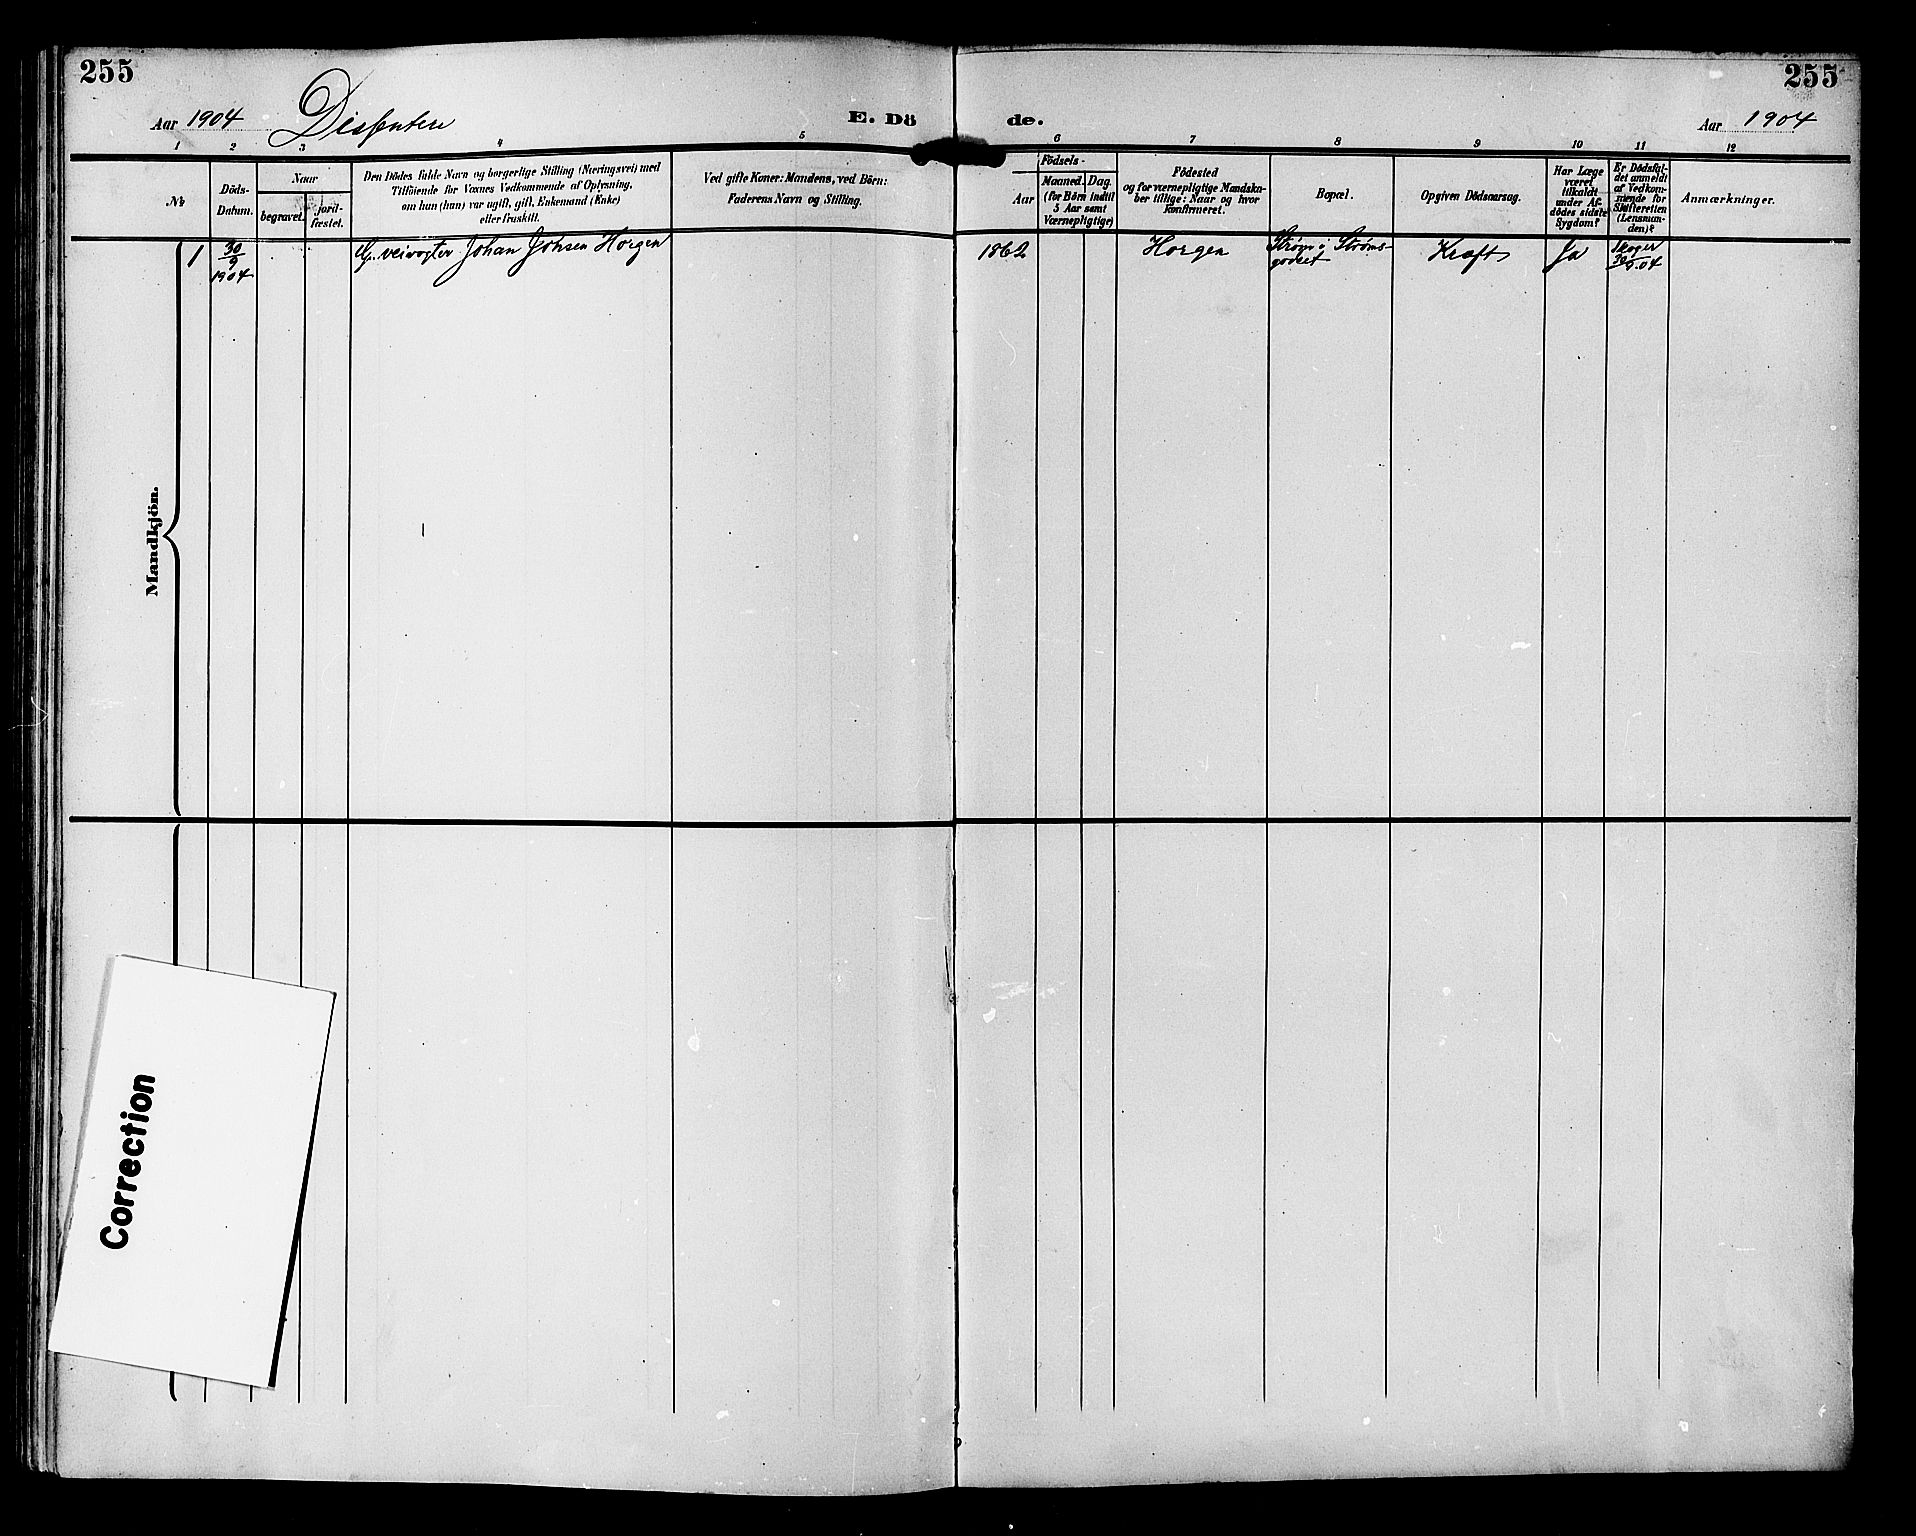 255
255
Aar 1904 Dissentere
E. Dö
de.
Aar 1904
1 2 3 4 5
6 7 8 9 10 11 12
№
Döds-
Datum.
Naar
begravet.
jord-
fæstet.
Den Dödes fulde Navn og borgerlige Stilling (Næringsvei) med
Tilföiende for Voxnes Vedkommende af Oplysning,
om hun (han) var ugift, gift, Enkemand (Enke)
eller fraskilt.
Ved gifte Koner: Mandens, ved Börn:
Faderens Navn og Stilling.
Födsels-
Aar
Maaned.
Dag.
(for Börn indtil
5 Aar samt
Værnepligtige)
Födested
og for værnepligtige Mandska-
ber tillige: Naar og hvor
konfirmeret.
Bopæl.
Opgiven Dödsaarsag.
Har Læge
været
tilkaldt
under Af-
dödes sidste
Sygdom?
Er Dödsfal-
det anmeldt
af Vedkom-
mende for
Skifteretten
(Lensman-
den)?
Anmærkninger.
1
30/9
1904
G. veivogter Johan Johsen Horgen
1862
Horgen
i Ströms-
godset
Kræft
Ja
Skoger
30/9.04
Mandkjön.
Correction